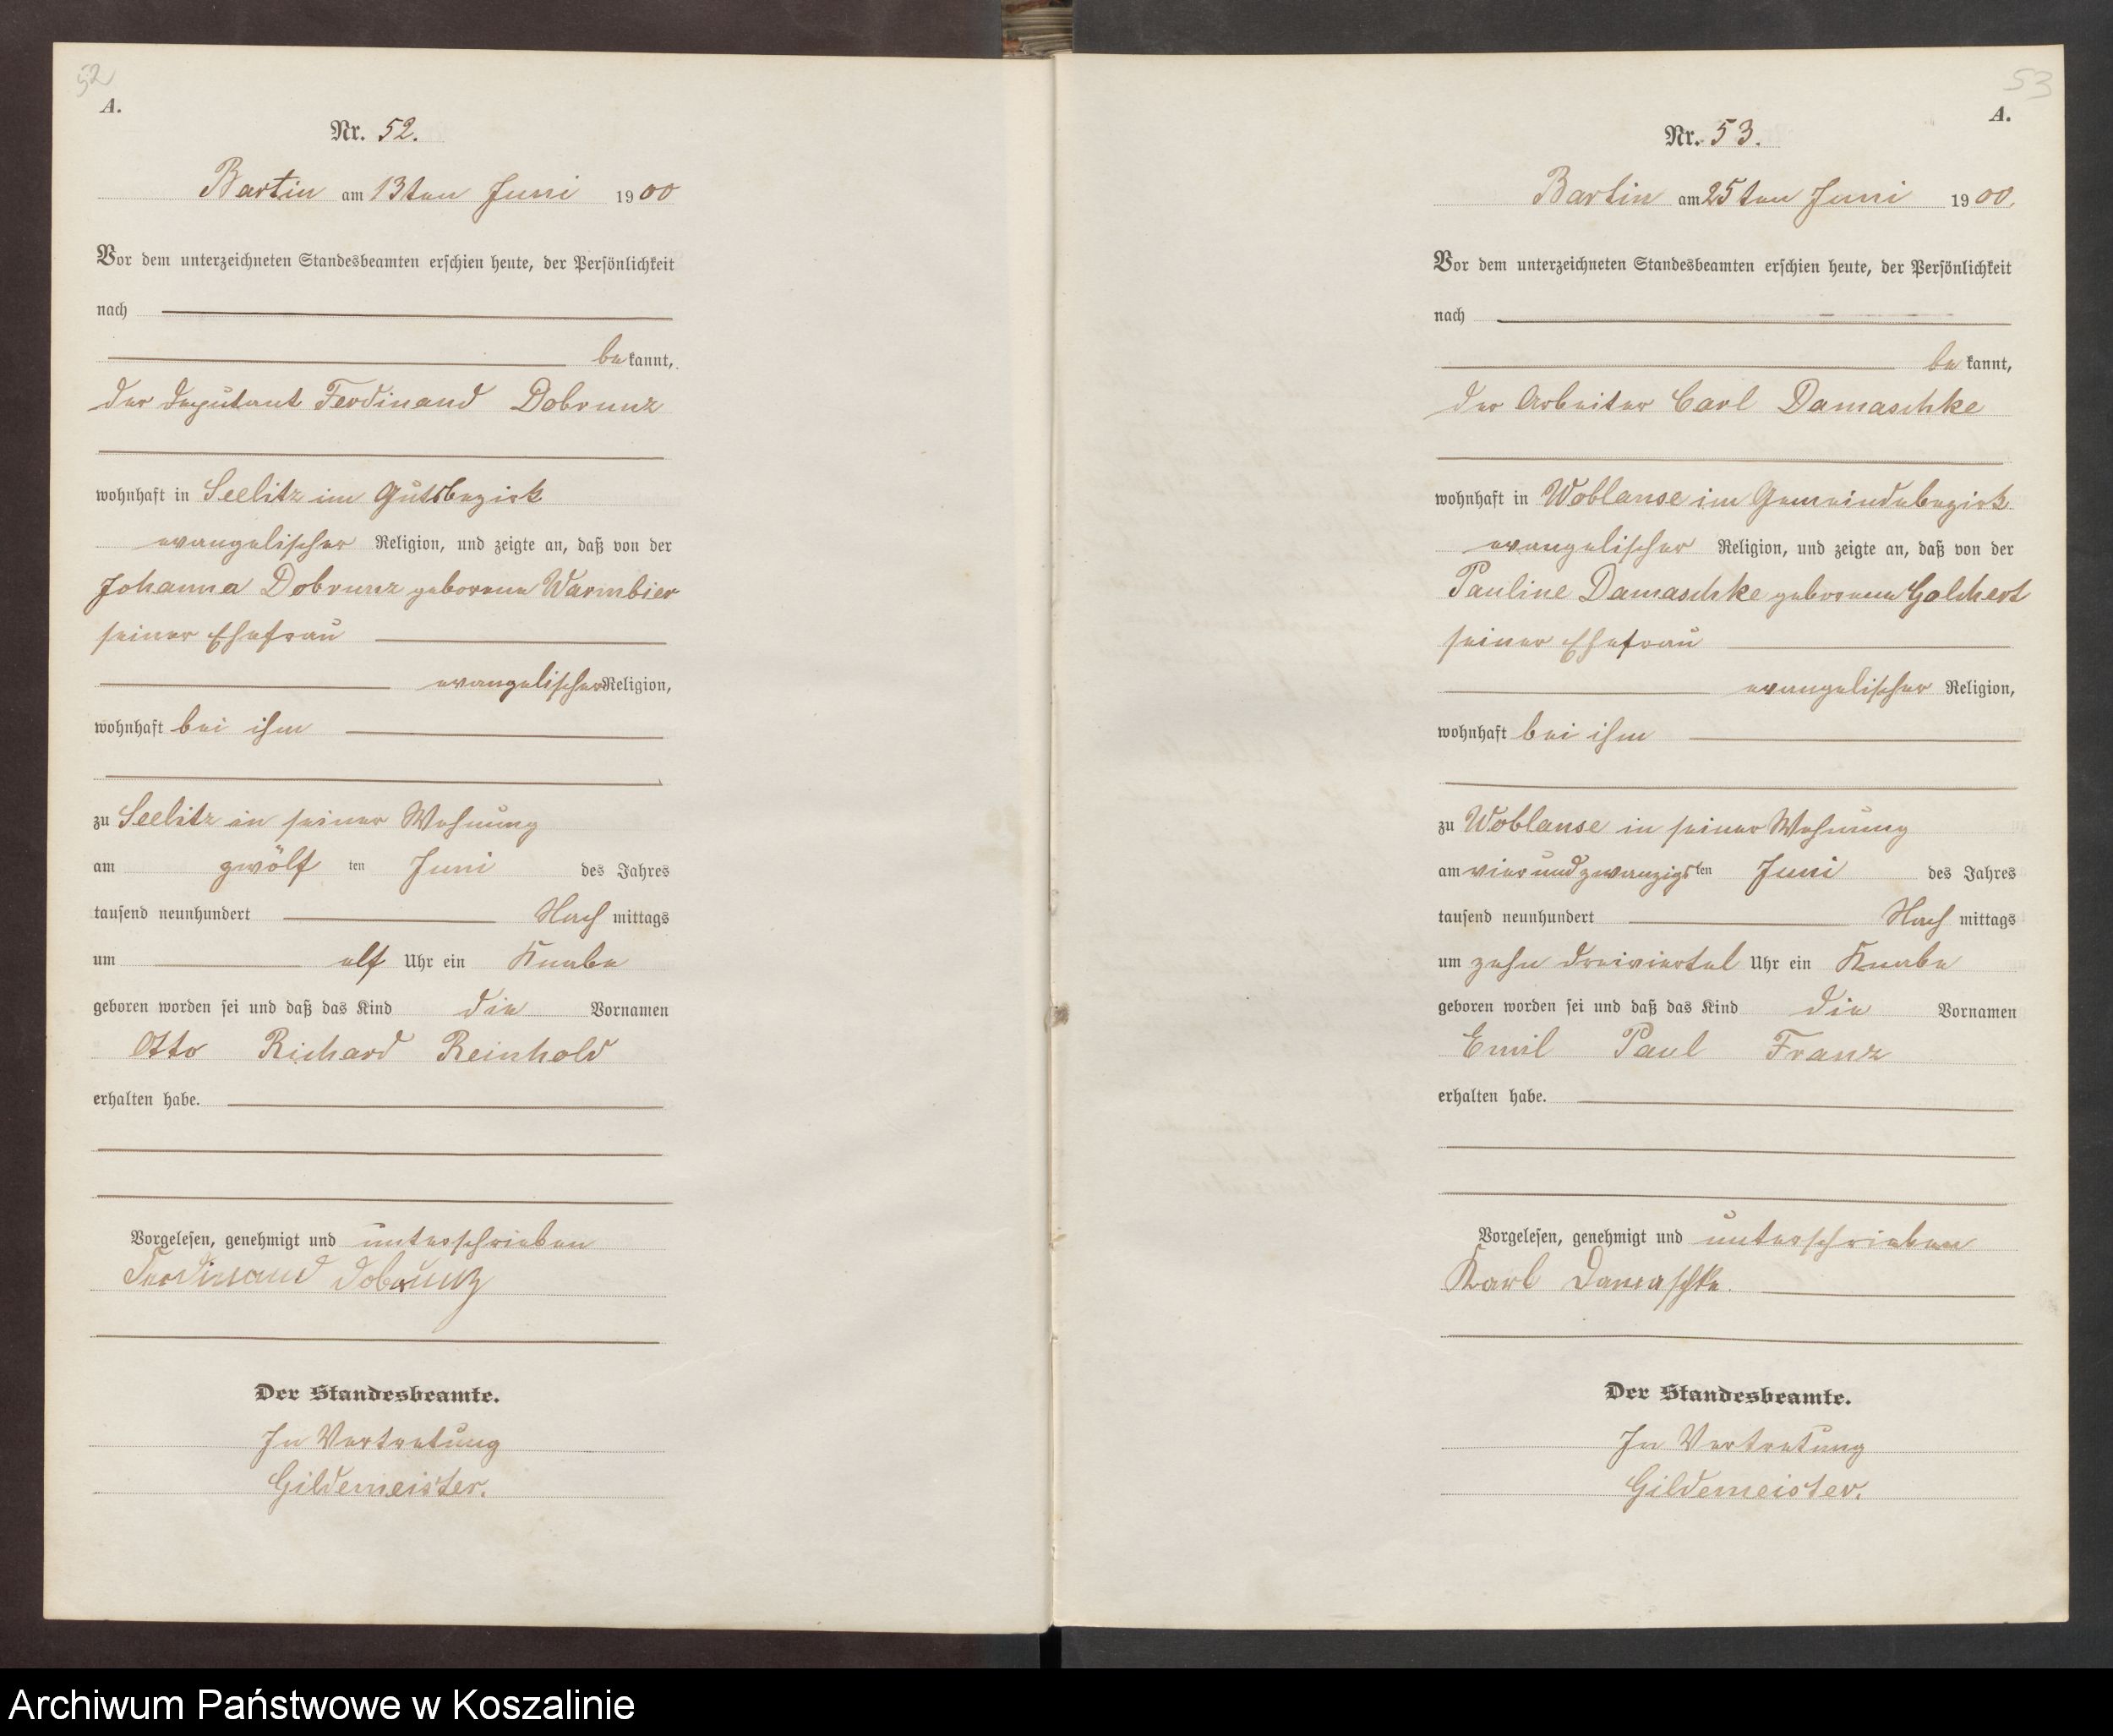 52
A.
Nr. 52.
Bartin am 13ten Juni 1900
Vor dem unterzeichneten Standesbeamten erschien heute, der Persönlichkeit
nach
bekannt,
der Deputant Ferdinand Dobrunz
wohnhaft in Seelitz im Gutsbezirk
evangelischer Religion, und zeigte an, daß von der
Johanna Dobrunz geborene Warmbier
seiner Ehefrau
evangelischer Religion,
wohnhaft bei ihm
zu Seelitz in seiner Wohnung
am zwölf ten Juni des Jahres
tausend neunhundert Nach mittags
um elf Uhr ein Knabe
geboren worden sei und daß das Kind die Vornamen
Otto Richard Reinhold
erhalten habe.
Vorgelesen, genehmigt und unterschrieben
Ferdinand Dobrunz
Der Standesbeamte.
In Vertretung
Gildemeister.
53
A.
Nr. 53.
Bartin am 25ten Juni 1900.
Vor dem unterzeichneten Standesbeamten erschien heute, der Persönlichkeit
nach
bekannt,
der Arbeiter Carl Damaschke
wohnhaft in Woblanse im Gemeindebezirk
evangelischer Religion, und zeigte an, daß von der
Pauline Damaschke geborene Golchert
seiner Ehefrau
evangelischer Religion,
wohnhaft bei ihm
zu Woblanse in seiner Wohnung
am vierundzwanzigsten Juni des Jahres
tausend neunhundert Nach mittags
um zehn dreiviertel Uhr ein Knabe
geboren worden sei und daß das Kind die Vornamen
Emil Paul Franz
erhalten habe.
Vorgelesen, genehmigt und unterschrieben
Karl Damaschke.
Der Standesbeamte.
In Vertretung
Gildemeister.
Archiwum Państwowe w Koszalinie